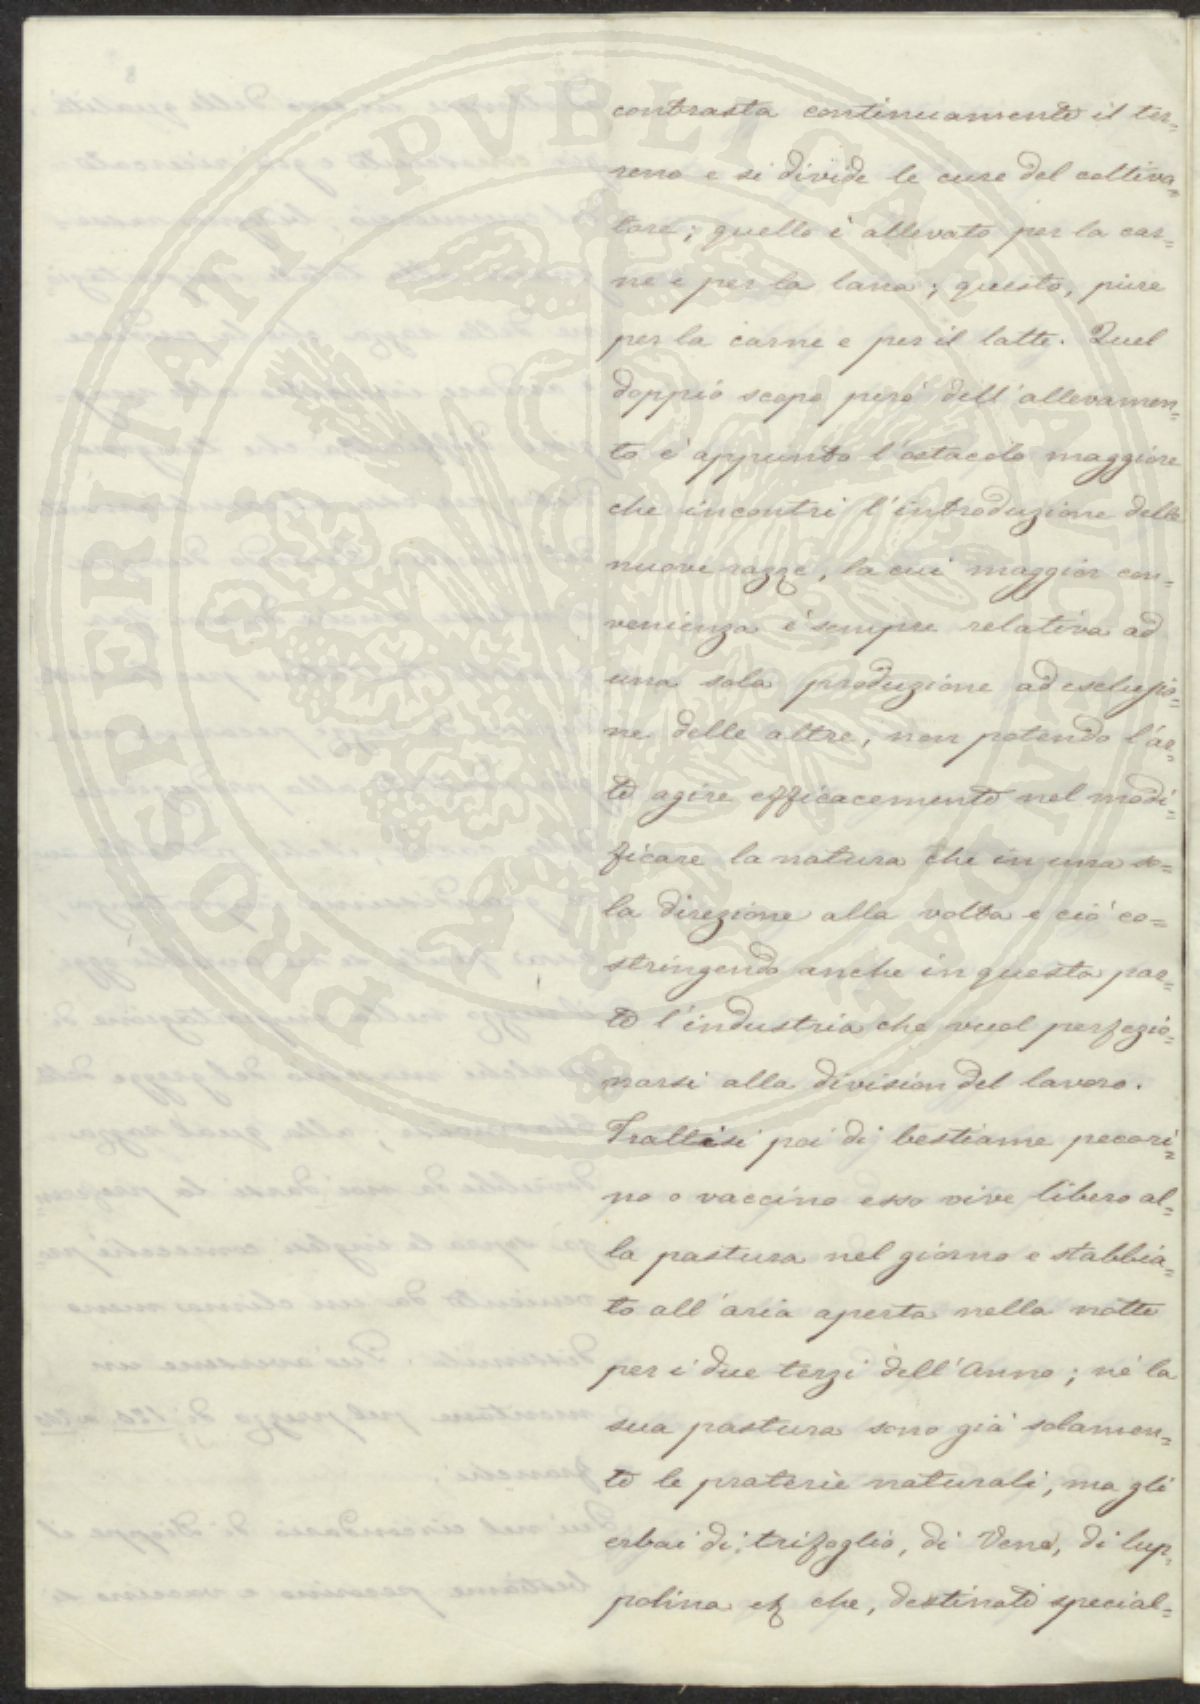 contrasta continuamente il ter=
reno e si divide le cure del coltiva=
tore; quello è allevato per la car=
ne e per la lana; questo, pure
per la carne e per il latte. Quel
doppio scopo però dell'allevamen=
to è appunto l'ostacolo maggiore
che incontri l'introduzione delle
nuove razze, la cui maggior con=
venienza è sempre relativa ad
una sola produzione ad esclusio=
ne delle altre, non potendo l'ar=
te agire efficacemente nel modi=
ficare la natura che in una so=
la direzione alla volta e ciò co=
stringendo anche in questa par=
te l'industria che vuol perfezio=
narsi alla division del lavoro.
Trattisi poi di bestiame pecori=
no o vaccino esso vive libero al=
la pastura nel giorno e stabbia=
to all'aria aperta nella notte
per i due terzi dell'Anno; nè la
sua pastura sono già solamen=
te le praterie naturali, ma gli
erbai di trifoglio, di Vena, di lup=
polina che, destinati special=
PROSPERITATI PVBLICAE AVGENDAE